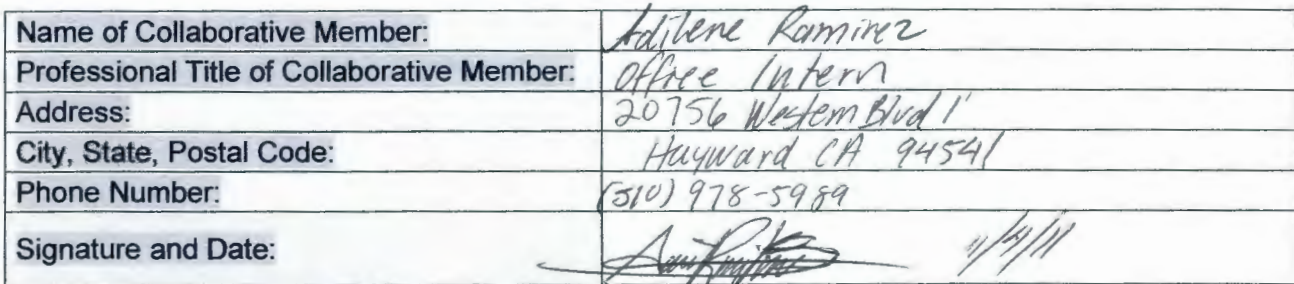 Name of Collaborative Member: Adilene Ramirez
Professional Title of Collaborative Member: Office Intern
Address: 20756 Western Blvd 1
City, State, Postal Code: Hayward CA 94541
Phone Number: (510) 978-5989
Signature and Date: 11/4/11